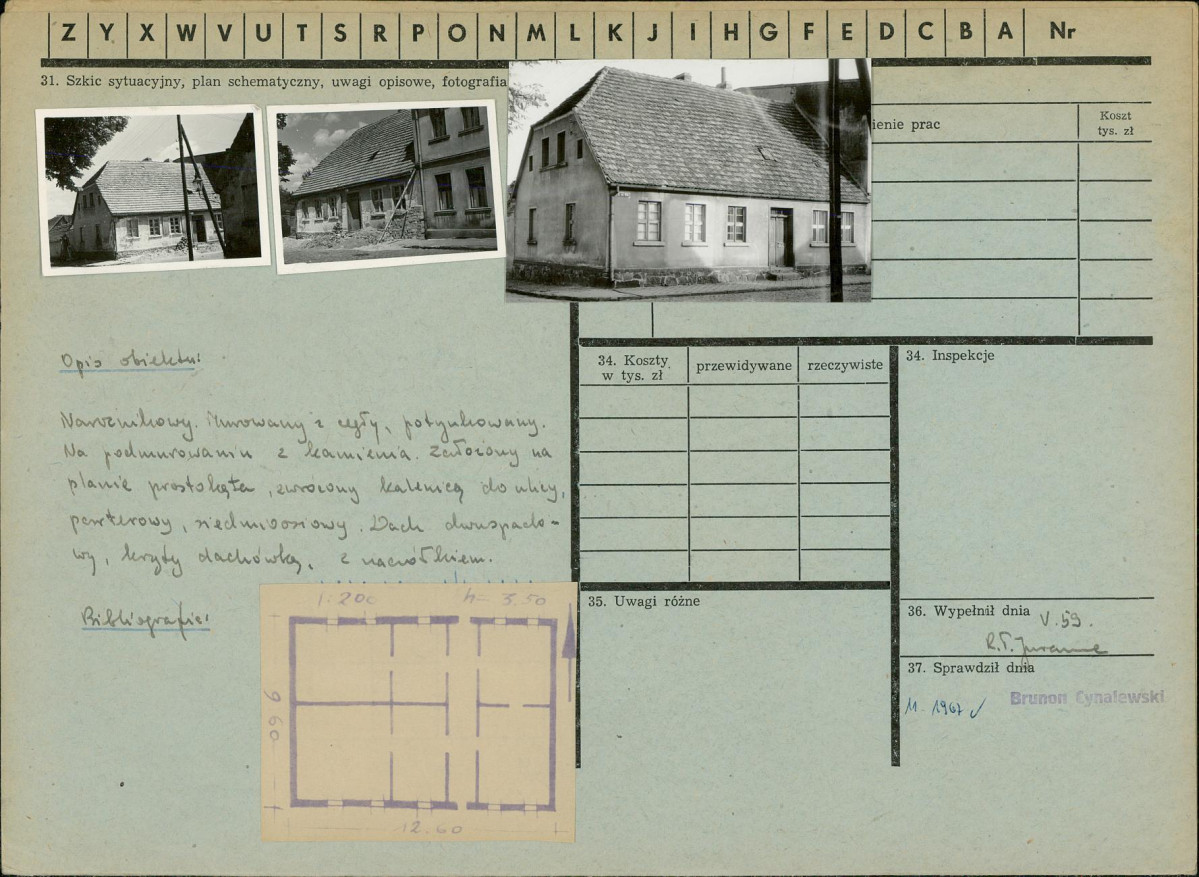 Z Y X W V U T S R P O N M L K J I H G F E D C B A Nr
31. Szkic sytuacyjny, plan schematyczny, uwagi opisowe, fotografia
ienie prac
Koszt
tys. zł
Opis obiektu:
Narożnikowy. Murowany z cegły, potynkowany.
Na podmurowaniu z kamienia. Założony na
planie prostokąta, zwrócony kalenicą do ulicy,
parterowy, siedmioosiowy. Dach dwuspado-
wy, kryty dachówką, z naczółkiem.
Bibliografia:
1:200 h = 3.50
9 60
12.60
34. Koszty
w tys. zł
przewidywane
rzeczywiste
34. Inspekcje
35. Uwagi różne
36. Wypełnił dnia V.59.
37. Sprawdził dnia
11. 1967
Brunon Cynalewski